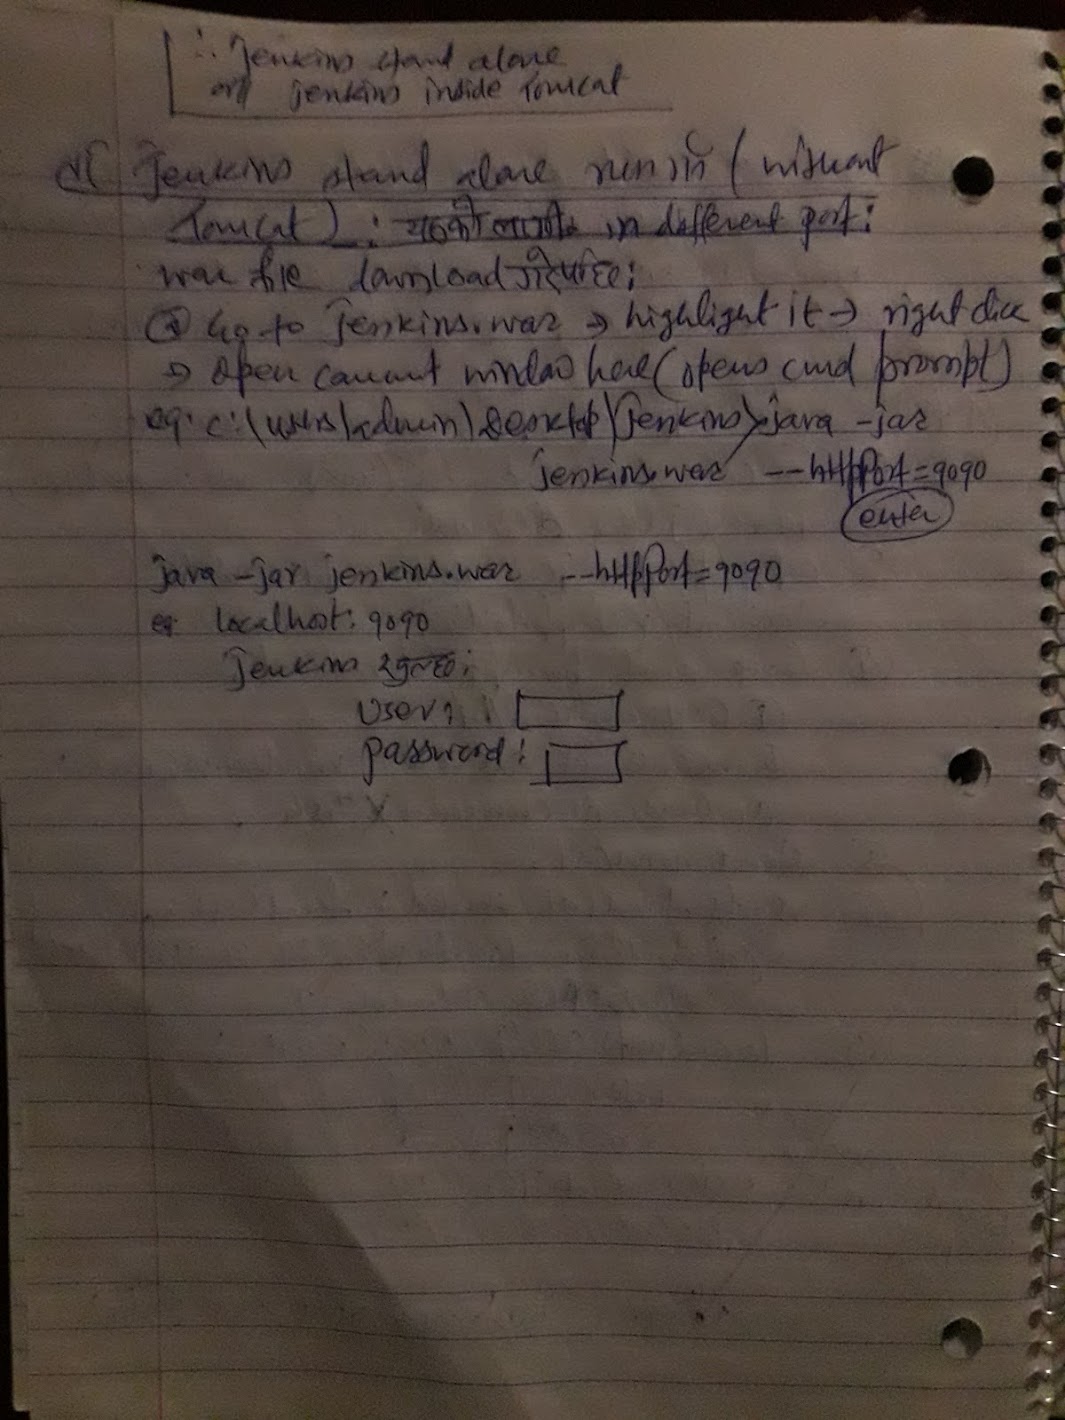 ∴ Jenkins stand alone
or jenkins inside Tomcat
Jenkins stand alone run (without
Tomcat) : in different port:
war file download
② Go to jenkins.war → highlight it → right click
→ open window here (opens cmd prompt)
eg: c:\users\admin\Desktop\jenkins> java -jar
jenkins.war --httpPort=9090
enter
java -jar jenkins.war --httpPort=9090
localhost: 9090
Jenkins
User:
password: